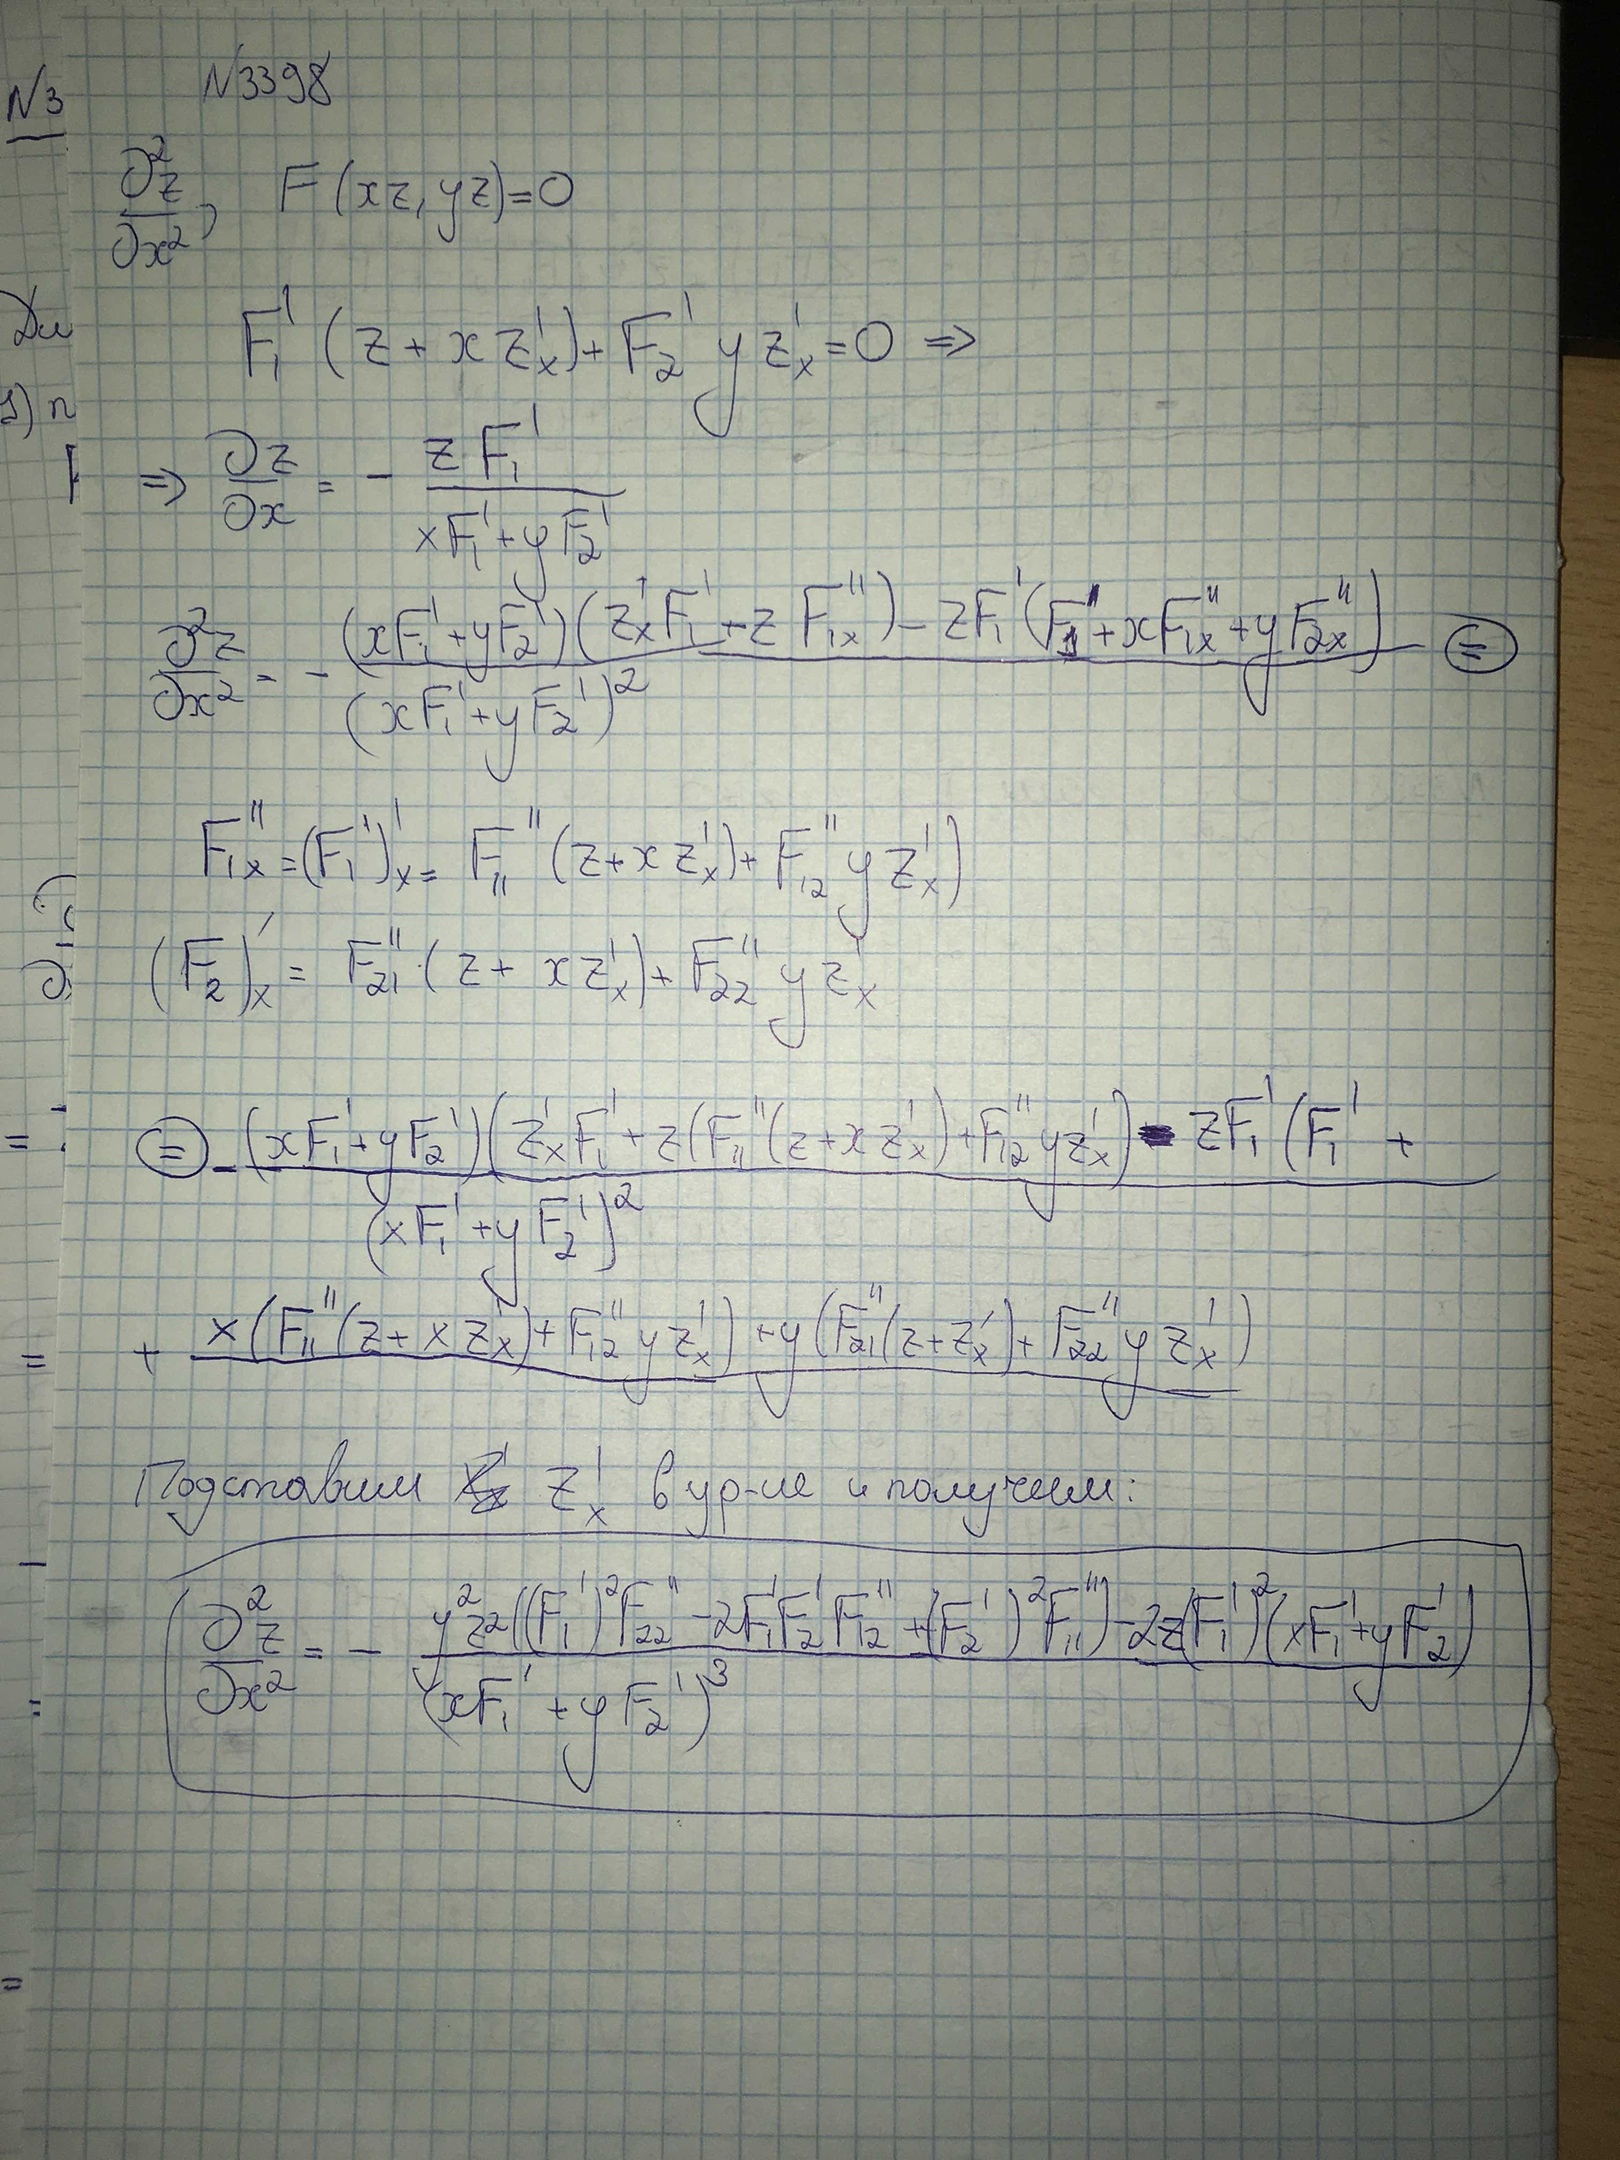 N3
N3398
∂²z/∂x², F(xz, yz)=0
Ди
F₁'(z + x z'ₓ) + F₂' y z'ₓ = 0 ⇒
1) п
⇒ ∂z/∂x = - zF₁' / (xF₁' + yF₂')
∂²z/∂x² = - ((xF₁' + yF₂')(z'ₓF₁' + zF₁ₓ'') - zF₁'(F₁' + xF₁ₓ'' + yF₂ₓ'')) / (xF₁' + yF₂')² ⊜
F₁ₓ'' = (F₁')'ₓ = F₁₁''(z + x z'ₓ) + F₁₂'' y z'ₓ)
(F₂)'ₓ = F₂₁''·(z + x z'ₓ) + F₂₂'' y z'ₓ
⊜ - (xF₁' + yF₂')(z'ₓF₁' + z(F₁₁''(z + x z'ₓ) + F₁₂'' y z'ₓ) - zF₁'(F₁' + / (xF₁' + yF₂')²
+ x(F₁₁''(z + x z'ₓ) + F₁₂'' y z'ₓ) + y(F₂₁''(z + z'ₓ) + F₂₂'' y z'ₓ)
Подставим z'ₓ в ур-ие и получим:
∂²z/∂x² = - (y²z²((F₁')²F₂₂'' - 2F₁'F₂'F₁₂'' + (F₂')²F₁₁'') - 2z(F₁')²(xF₁' + yF₂')) / (xF₁' + yF₂')³